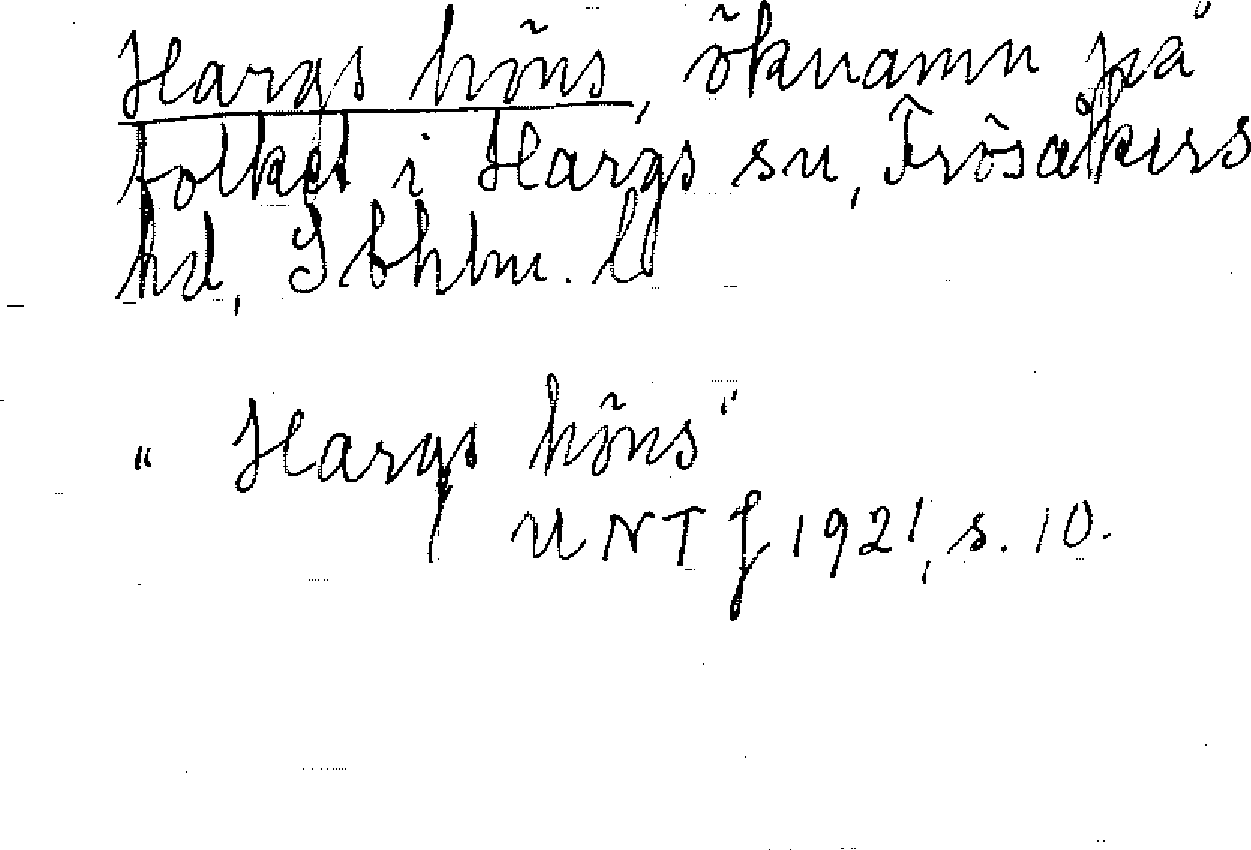 Hargs höns, öknamn på
folket i Hargs sn, Frösåkers
hd, Sthlm. l
" Hargs höns"
UNT J 1921, s. 10.